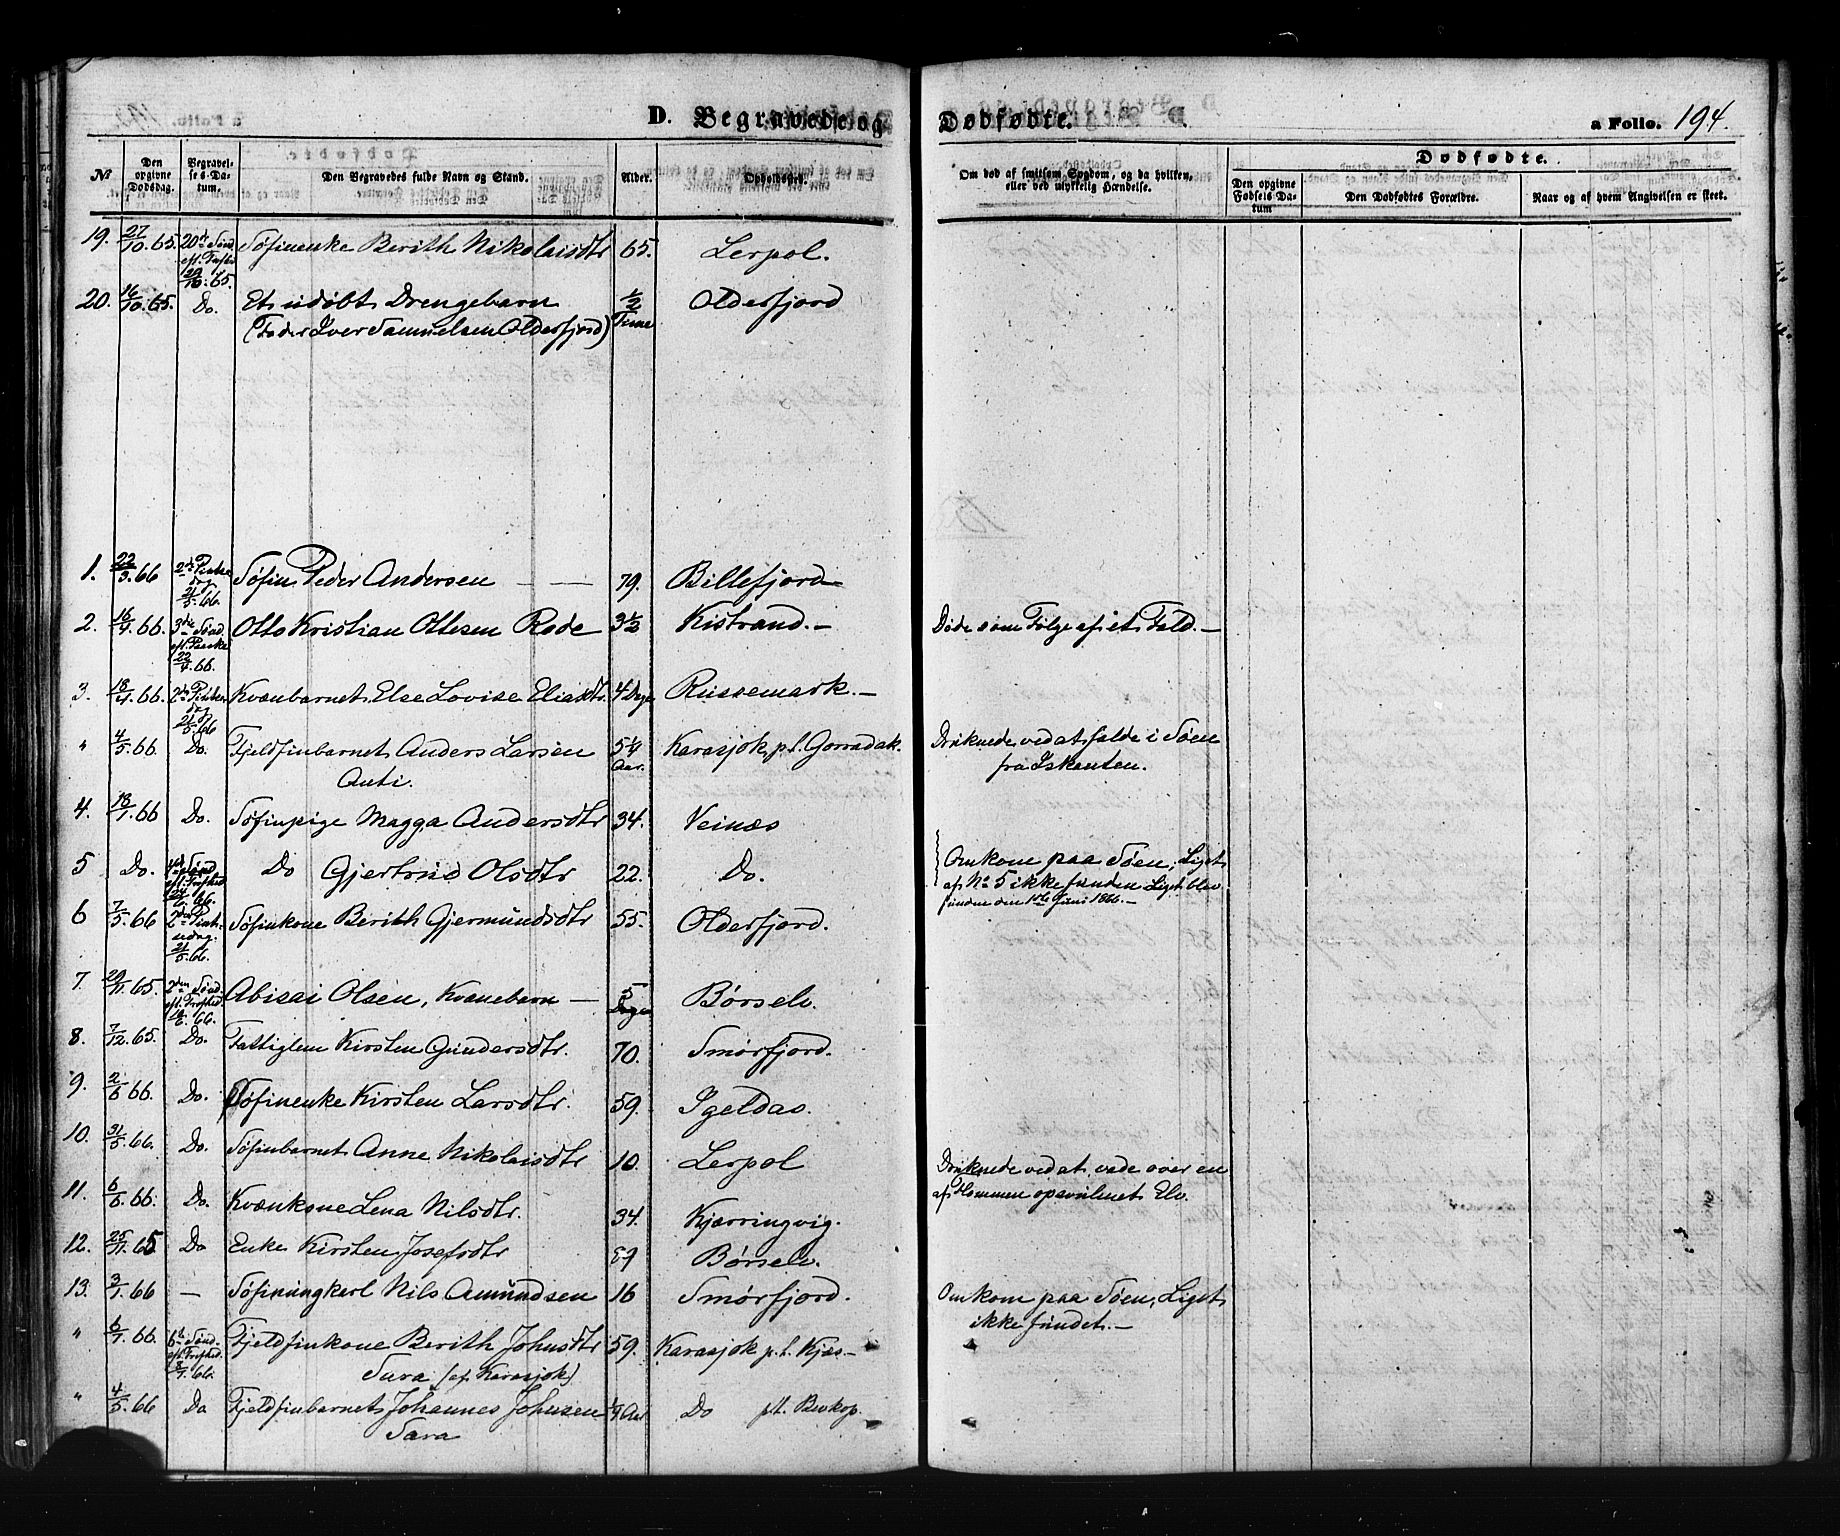 D. Begravede og Dødfødte. a Folio. 194.
Dødfødte.
No Den opgivne Dødsdag. Begravelses-Datum. Den Begravedes fulde Navn og Stand. Alder. Opholdssted. Om død af smitsom Sygdom, og da hvilken, eller ved ulykkelig Hændelse. Den opgivne Fødsels Datum Den Dødfødtes Forældre. Naar og af hvem Angivelsen er skeet.
19. 27/10.65. 20de Sønd. eft. Trefh. 29/10.65. Søfinenke Berith Nikolaisdtr 65. Lerpol.
20. 16/10.65. Do. Et udøbt Drengebarn 1/2 Time Olderfjord
(Fader Iver Samuelsen Olderfjord)
1. 22/3.66 2den Pintsedag 21/5.66. Søfin Peder Andersen 79. Billefjord
2. 16/4.66. 3die Sønd. eft. Paaske 22/4.66. Otto Kristian Ottesen Rode 3 1/2 Kistrand.– Døde som Følge af et Fald.–
3. 18/4.66. 2den Pintsedag 21/5.66 Kvænbarnet Else Lovise Eliasdtr. 4 Dage Russemark.–
" 4/5.66. Do. Fjeldfinbarnet Anders Larsen 5 1/4 Aar. Karasjok p.t. Gorradak. Druknede ved at falde i Søen
Anti. fra Iskanten.
4. 18/1.66 Do. Søfinpige Magga Andersdtr 34. Veinæs
5 Do. 4de Sønd. eft. Trefhed. 24/6.66. Do Gjertrud Olsdtr 22. Do. Omkom paa Søen, Liget
af No 5 ikke funden Liget blev
funden den 1ste Juni 1866.–
6 7/5.66 2den Pintsedag. 21/5.66. Søfinkone Berith Gjermundsdtr 55. Olderfjord.
7. 20/11.65. 2den Sønd. eft. Trefhed. 10/6.66. Abisai Olsen, Kvænebarn – 5 Dage Børselv.
8. 7/12.65. Do. Fattiglem Kirsten Gundersdtr. 70. Smørfjord.
9. 2/6.66. Do. Søfinenke Kirsten Larsdtr. 59. Igeldas.
10. 31/5.66. Do. Søfinbarnet Anne Nikolaisdtr 10. Lerpol Druknede ved at vade over en
af Flommen opsvulmet Elv.
11. 6/6.66. Do. Kvænkone Lena Nilsdtr. 34. Kjærringvig.
12. 25/11.65 Do Enke Kirsten Josefsdtr Børselv.
13. 3/1.66 – Søfinungkarl Nils Amundsen 16 Smørfjord. Omkom paa Søen, Liget
ikke fundet.–
" 6/7.66. 6te Sønd. eft. Trefhed. 8/7.66. Fjeldfinkone Berith Johnsdtr 59. Karasjok p.t. Kjæs–
Sara (af Karasjok)
" 4/5.66 Do Fjeldfinbarnet Johannes Johnsen 1/4 Aar Do p.t. Bevkop.
Sara